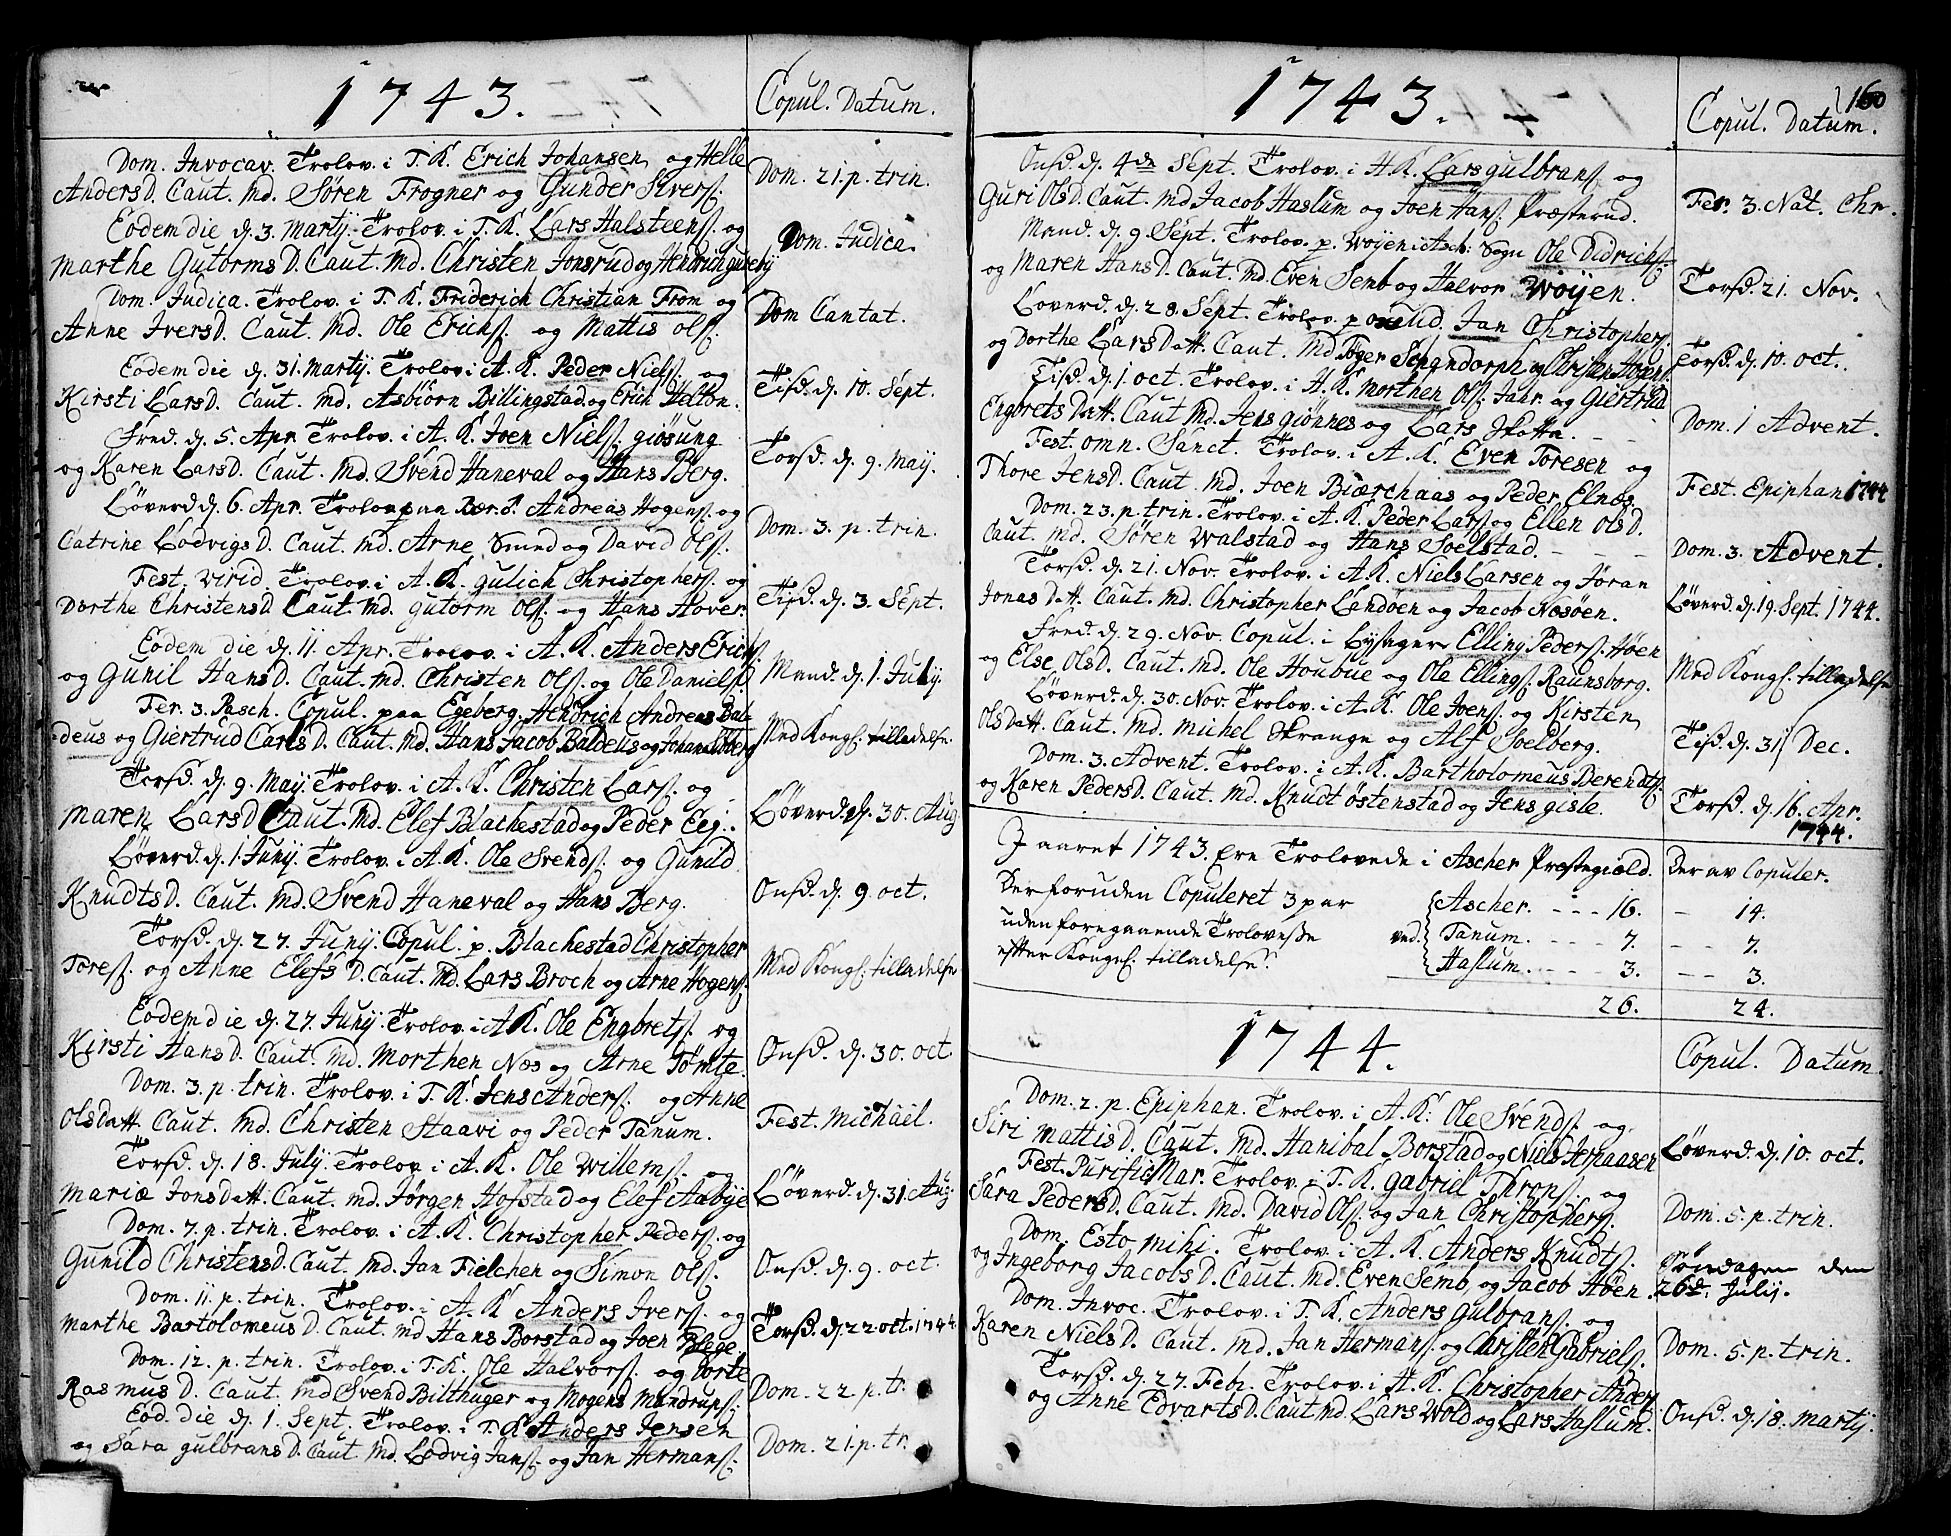 1743.
Copul. Datum.
Dom. Invocav. Trolov. i T. K. Erich Johansen og Helle
Anders D. Caut. Md. Søren Frogner og Gunder Siverß.
Dom. 21. p. trin.
Eodem die d. 3. Martij. Trolov. i T. K. Lars Halsteenß. og
Marthe Gutorms D. Caut. Md. Christen Jonsrud og Hendrich guseby
Dom. Judica.
Dom. Judica. Trolov. i T. K. Friderich Christian From og
Anne Ivers D. Caut. Md. Ole Erichß. og Mattis Olß.
Dom Cantat.
Eodem die d. 31. Martij. Trolov. i A. K. Peder Nielß. og
Kirsti Lars D. Caut. Md. Asbiörn Billingstad og Erich Helton.
Tisd. d. 10. Sept.
Fred. d. 5. Apr. Trolov. i A. K. Joen Nielß. giösung
og Karen Lars D. Caut. Md. Svend Haneval og Hans Berg.
Torsd. d. 9. May.
Løverd. d. 6. Apr. Trolov. paa Bær. V. Andreas Hogenß. og
Catrine Lodvigs D. Caut. Md. Arne Smed og David Olß.
Dom. 3. p. trin.
Fest. Virid. Trolov. i A. K. Gulich Christopherß. og
Dorthe Christens D. Caut. Md. Gutorm Olß. og Hans Hover.
Tisd. d. 3. Sept.
Eodem die d. 11. Apr. Trolov. i A. K. Anders Erichß.
og Gunil Hans D. Caut. Md. Christen Olß. og Ole Danielß.
Mand. d. 1. July.
Fer. 3. Pasch. Copul. paa Egeberg. Hendrich Andreas Bal-
deus og Giertrud Carls D. Caut. Md. Hans Jacob Baldeus og Johan
Med Kongl. tilladelse.
Torsd. d. 9. May. Trolov. i A. K. Christen Larß. og
Maren Lars D. Caut. Md. Elef Blachestad og Peder Eeg.
Løverd. d. 30. Aug
Løverd. d. 1. Junij. Trolov. i A. K. Ole Svendß. og Gunild
Knudts D. Caut. Md. Svend Haneval og Hans Berg.
Onsd. d. 9. oct.
Torsd. d. 27. Junij. Copul. p. Blachestad Christopher
Toreß. og Anne Elefs D. Caut. Md. Lars Broch og Arne Hogenß.
Med Kongl. tilladelse
Eodem die d. 27. Junij. Trolov. i A. K. Ole Engbretß. og
Kirsti Hans D. Caut. Md. Morthen Nos og Arne Tømte.
Onsd. d. 30. oct.
Dom. 3. p. trin. Trolov. i T. K. Jens Anderß. og Anne
Ols Datt. Caut. Md. Christen Staavi og Peder Tanum.
Fest. Michael.
Torsd. d. 18. July. Trolov. i A. K. Ole Willemß. og
Mariæ Jons Datt. Caut. Md. Jørgen Hofstad og Elef Aabye
Løverd. d. 31. Aug.
Dom. 7. p. trin. Trolov. i A. K. Christopher Pederß. og
Gunild Christens D. Caut. Md. Jan Fielchen og Simon Olß.
Onsd. d. 9. oct.
Dom. 11. p. trin. Trolov. i A. K. Anders Iverß. og
Marthe Bartolomeus D. Caut. Md Hans Borstad og Joen
Torsd. d. 22 oct. 1744.
Dom. 12. p. trin. Trolov. i T. K. Ole Halvorß. og Dorte
Rasmus D. Caut. Md Svend Bilthuger og Mogens Mandrupß.
Dom. 22. p. tr.
Eod. die d. 1. Sept. Trolov. i T. K. Anders Jensen
og Sara gulbrans D. Caut Md. Lodvig Janß. og Jan Hermanß.
Dom. 21. p. tr.
160
1743.
Copul. Datum.
Onsd. d. 4de Sept. Trolov. i H. K. Lars gulbranß. og
Guri Ols D. Caut. Md Jacob Haslum og Joen Hanß. Præsterud.
Fer. 3. Nat. Chr.
Mand. d. 9 Sept. Trolov. p. Wøyen i Asch. Sogn Ole Didrichß.
og Maren Hans D. Caut. Md. Even Semb og Halvor Wøyen.
Torsd. 21. Nov.
Løverd. d. 28. Sept. Trolov. p. Jan Christopherß.
og Dorthe Lars Datt. Caut. Md. Roger Schandorph og Christen Hogenß.
Torsd. d. 10. oct.
Tisd. d. 1. oct. Trolov. i H. K. Morthen Olß. Jahr og Giertrud
Engbrets Datt. Caut Md. Jens giönnes og Lars Skotta.
Dom. 1 Advent.
Fest. omn. Sanct. Trolov. i A. K. Even Toresen og
Thore Jens D. Caut. Md. Joen Biærchaas og Peder Elnæs.
Fest. Epiphan 1744
Dom. 23. p. trin. Trolov. i A. K. Peder Larß. og Ellen Ols D.
Caut. Md. Søren Walstad og Hans Soelstad.
Dom. 3. Advent.
Torsd. d. 21. Nov. Trolov. i A. K. Niels Larsen og Jøran
Jonas Datt. Caut. Md. Christopher Landøen og Jacob Nesøen.
Løverd. d. 19. Sept. 1744.
Fred. d. 29. Nov. Copul. i Lysager Elling Pederß. Høen
og Else Ols D. Caut. Md. Ole Houbue og Ole Ellingß. Raunsborg.
Med Kongl. tilladelse
Løverd. d. 30. Nov. Trolov. i A. K. Ole Joenß. og Kirsten
Ols Datt. Caut. Md. Michel Skrange og Alf Soelberg.
Tisd. d. 31 Dec.
Dom. 3. Advent. Trolov. i A. K. Bartholomeus Berendtß.
og Karen Peders D. Caut. Md. Knudt Østenstad og Jens gisle.
Torsd. d. 16. Apr.
1744.
I aaret 1743. Ere Trolovede i Ascher Præstegield.
Der av Copuler.
Der foruden Copuleret 3 par
uden foregaaende Trolovelse
efter Kongel. tilladelse.
ved.
Ascher. - - - 16. - 14.
Tanum. - - - 7. - - 7.
Haslum. - - - 3. - - 3.
26. 24.
1744.
Copul. Datum.
Dom. 2. p. Epiphan. Trolov. i A. K. Ole Svendß. og
Siri Mattis D. Caut. Md. Hanibal Borstad og Niels
Løverd. d. 10. oct.
Fest. Purific Mar. Trolov. i T. K. Gabriel Thronß. og
Sara Peders D. Caut. Md. David Olß. og Jan Christopherß.
Dom. 5. p. trin.
Dom. Esto Mihi. Trolov. i A. K. Anders Knudtß.
og Ingeborg Jacobs D. Caut. Md. Even Semb og Jacob Høen.
Søndagen den
26de Julij.
Dom. Invoc. Trolov. i T. K. Anders Gulbranß. og
Karen Niels D. Caut. Md. Jan Hermanß. og Christen Gabrielß.
Dom. 5. p. trin.
Torsd. d. 27. Febr. Trolov. i H. K. Christopher Anderß.
og Anne Edvarts D. Caut Md. Lars Wold og Lars Haslum.
Onsd. d. 18. Martij.